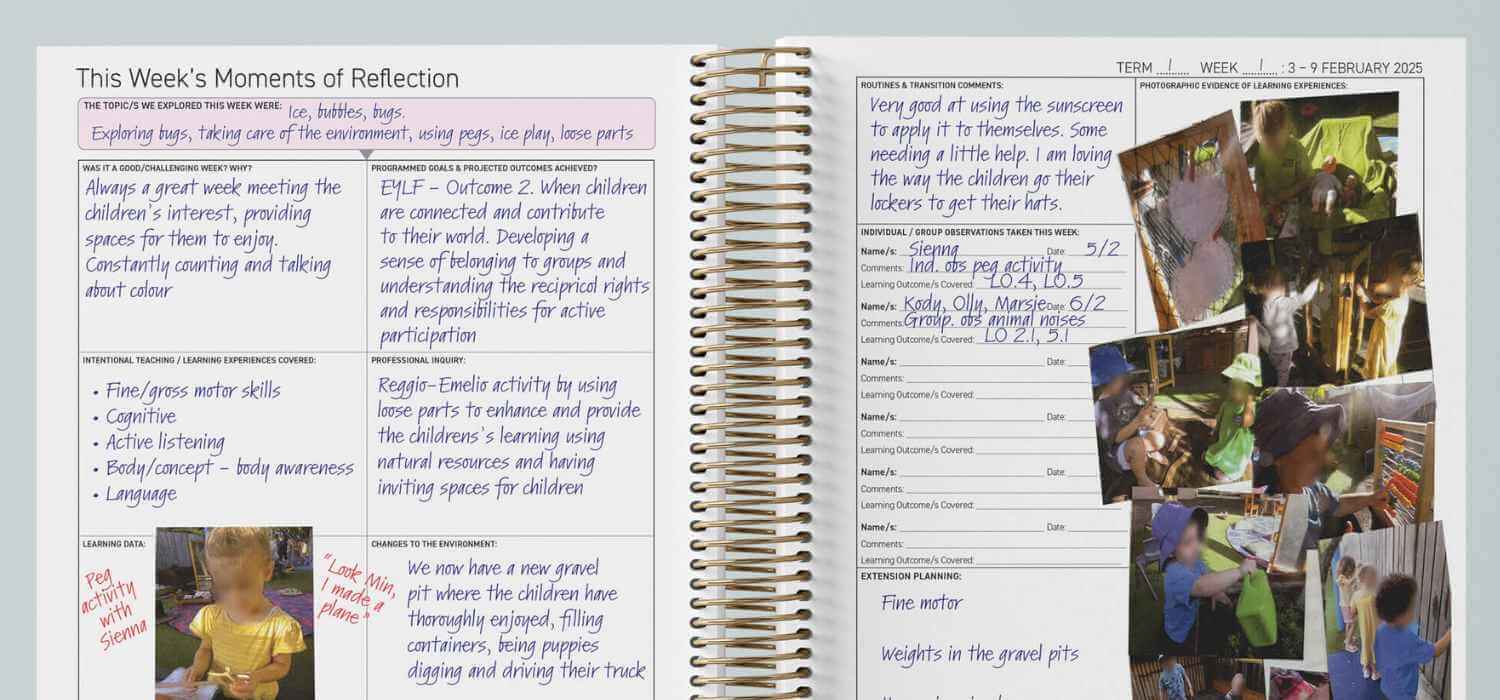 This Week's Moments of Reflection
THE TOPIC/S WE EXPLORED THIS WEEK WERE: Ice, bubbles, bugs.
Exploring bugs, taking care of the environment, using pegs, ice play, loose parts
WAS IT A GOOD/CHALLENGING WEEK? WHY?
Always a great week meeting the
children's interest, providing
spaces for them to enjoy.
Constantly counting and talking
about colour
PROGRAMMED GOALS & PROJECTED OUTCOMES ACHIEVED?
EYLF – Outcome 2. When children
are connected and contribute
to their world. Developing a
sense of belonging to groups and
understanding the recipricol rights
and responsibilities for active
participation
INTENTIONAL TEACHING / LEARNING EXPERIENCES COVERED:
• Fine/gross motor skills
• Cognitive
• Active listening
• Body/concept – body awareness
• Language
PROFESSIONAL INQUIRY:
Reggio-Emelio activity by using
loose parts to enhance and provide
the childrens's learning using
natural resources and having
inviting spaces for children
LEARNING DATA:
Peg
activity
with
Sienna
"Look Min,
I made a
plane"
CHANGES TO THE ENVIRONMENT:
We now have a new gravel
pit where the children have
thoroughly enjoyed, filling
containers, being puppies
digging and driving their truck
TERM 1 WEEK 1 : 3 – 9 FEBRUARY 2025
ROUTINES & TRANSITION COMMENTS:
Very good at using the sunscreen
to apply it to themselves. Some
needing a little help. I am loving
the way the children go their
lockers to get their hats.
PHOTOGRAPHIC EVIDENCE OF LEARNING EXPERIENCES:
INDIVIDUAL / GROUP OBSERVATIONS TAKEN THIS WEEK:
Name/s: Sienna Date: 5/2
Comments: Ind. obs peg activity
Learning Outcome/s Covered: LO.4, LO.5
Name/s: Kody, Olly, Marsie Date: 6/2
Comments: Group. obs animal noises
Learning Outcome/s Covered: LO 2.1, 5.1
Name/s: Date:
Comments:
Learning Outcome/s Covered:
Name/s: Date:
Comments:
Learning Outcome/s Covered:
Name/s: Date:
Comments:
Learning Outcome/s Covered:
Name/s: Date:
Comments:
Learning Outcome/s Covered:
EXTENSION PLANNING:
Fine motor
Weights in the gravel pits